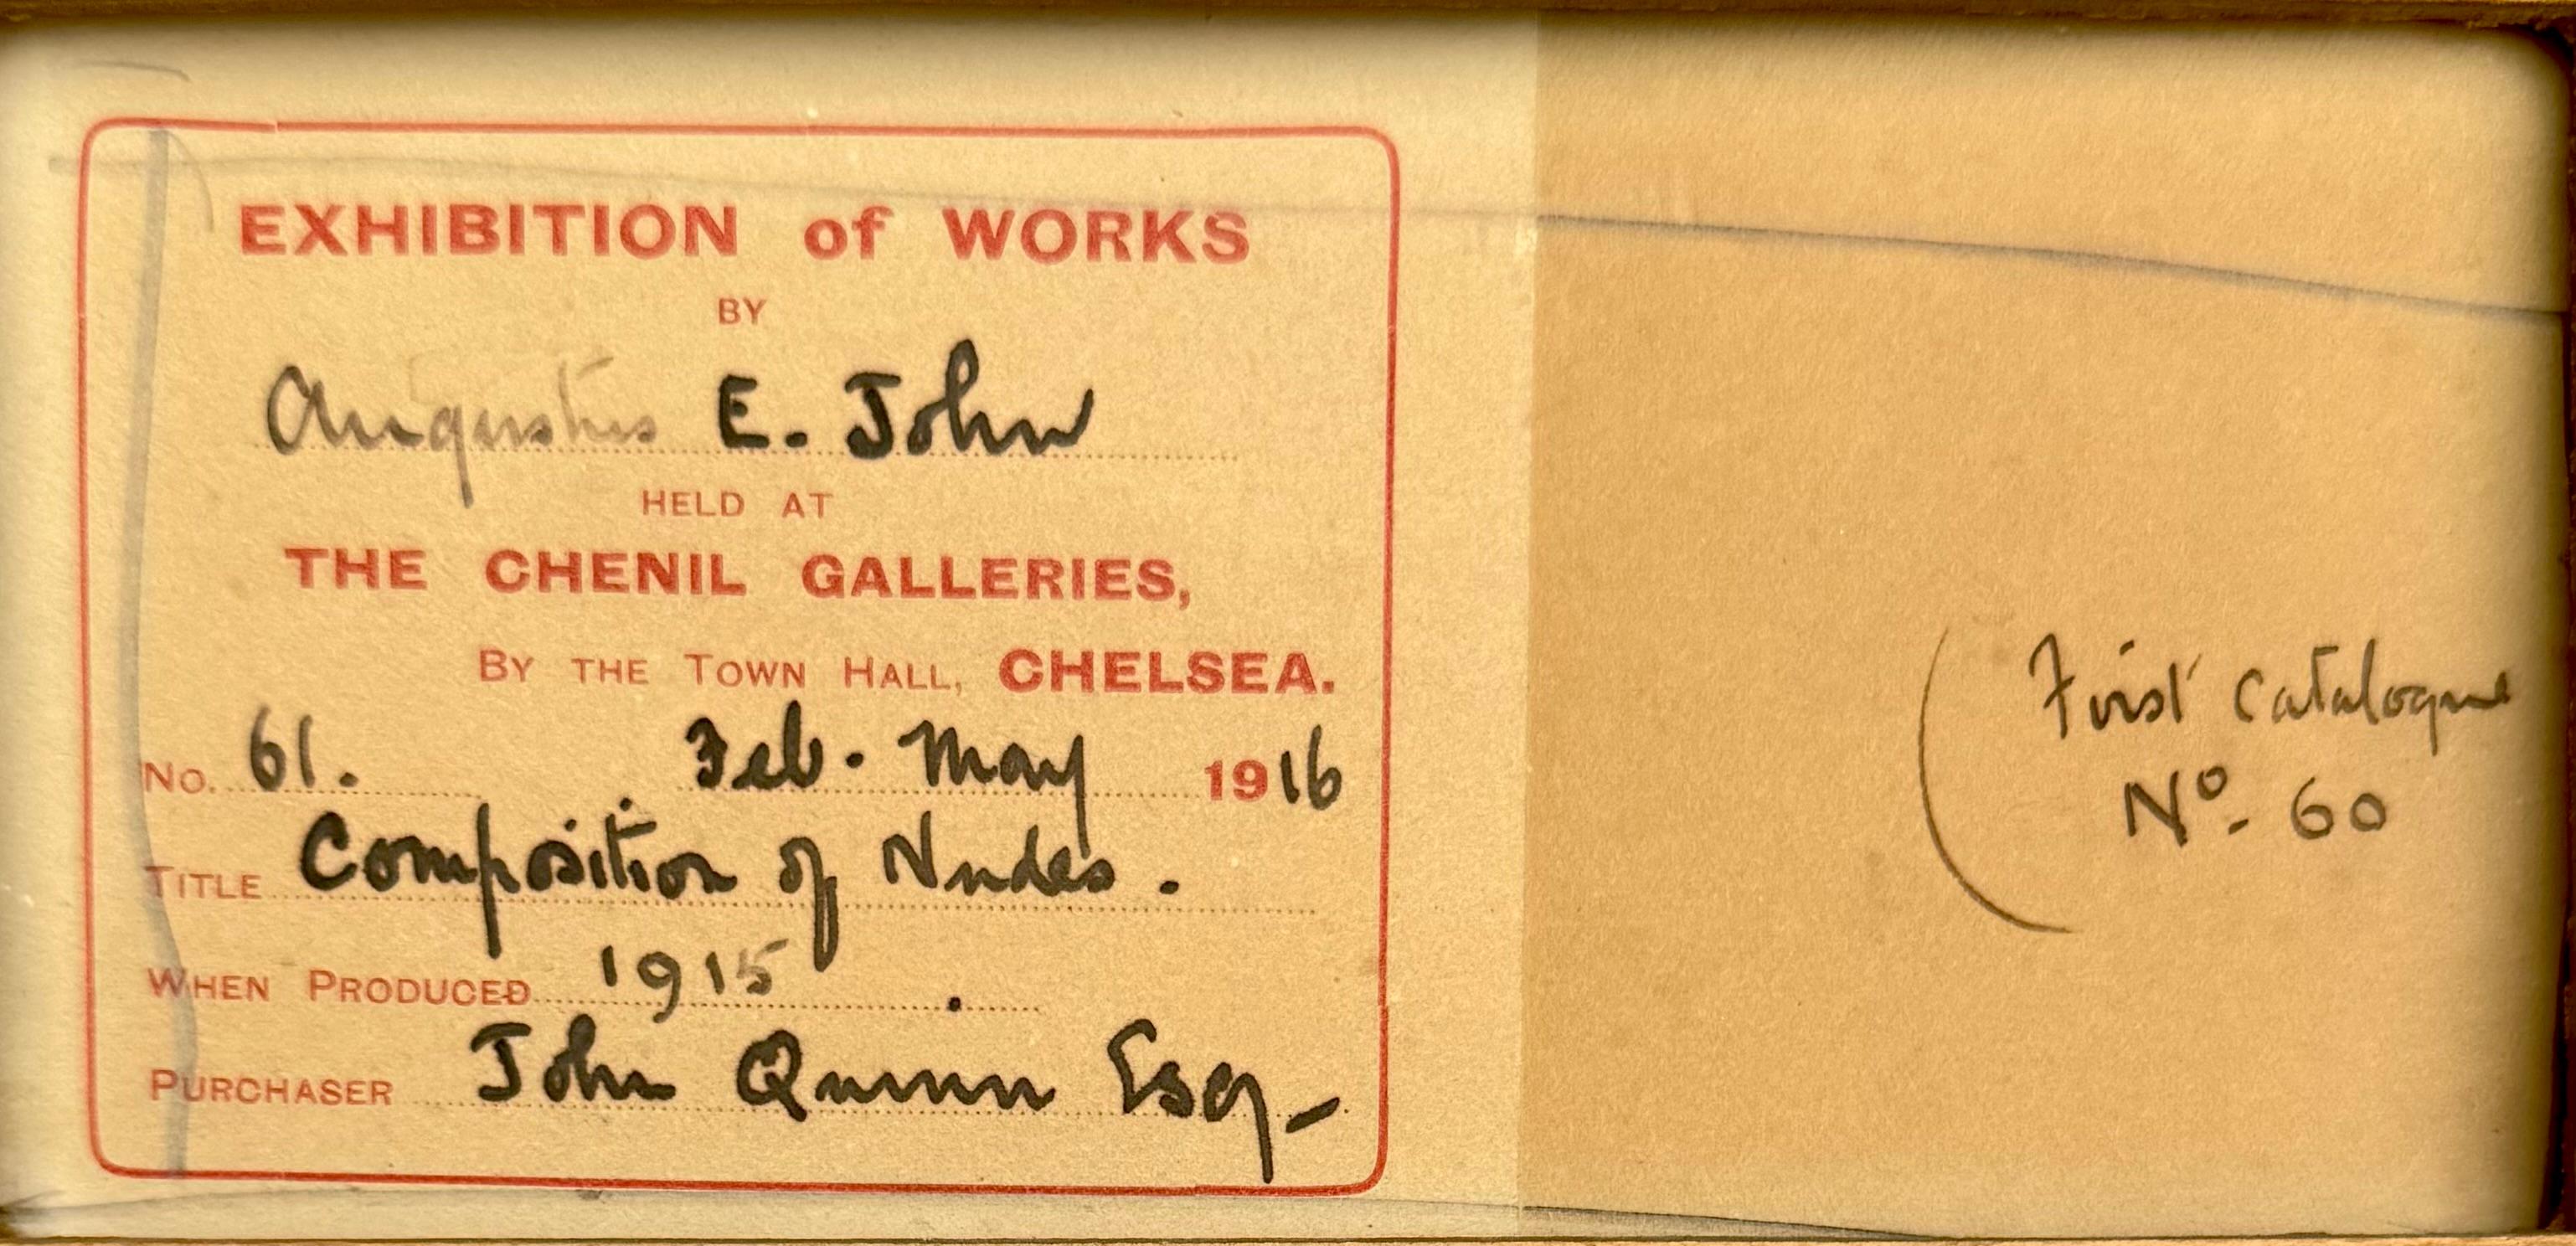 EXHIBITION of WORKS
BY
Augustus E. John
HELD AT
THE CHENIL GALLERIES,
BY THE TOWN HALL, CHELSEA.
No. 61. Feb. May 1916
TITLE Composition of Nudes.
WHEN PRODUCED 1915.
PURCHASER John Quinn Esq-
(First Catalogue
Nº. 60